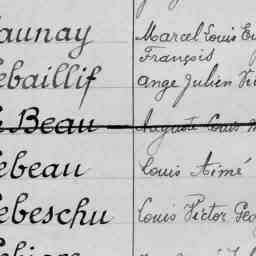 aunay Marcel Louis Eu
François
ebaillif Ange Julien Vic
Beau Auguste Louis
ebeau Louis Aimé
ebeschu Louis Victor Geo